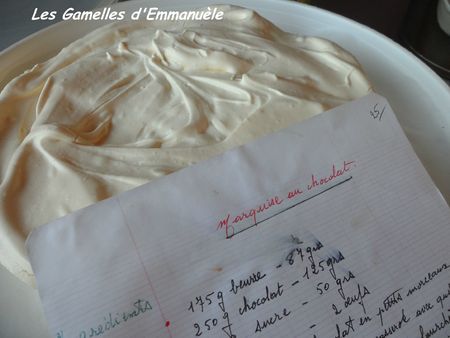 Les Gamelles d'Emmanuèle
25/
Marquise au chocolat.
Ingrédients
175g beurre - 87 grs
250g chocolat - 125 grs
sucre - 50 grs
2 œufs
en petits morceaux
avec